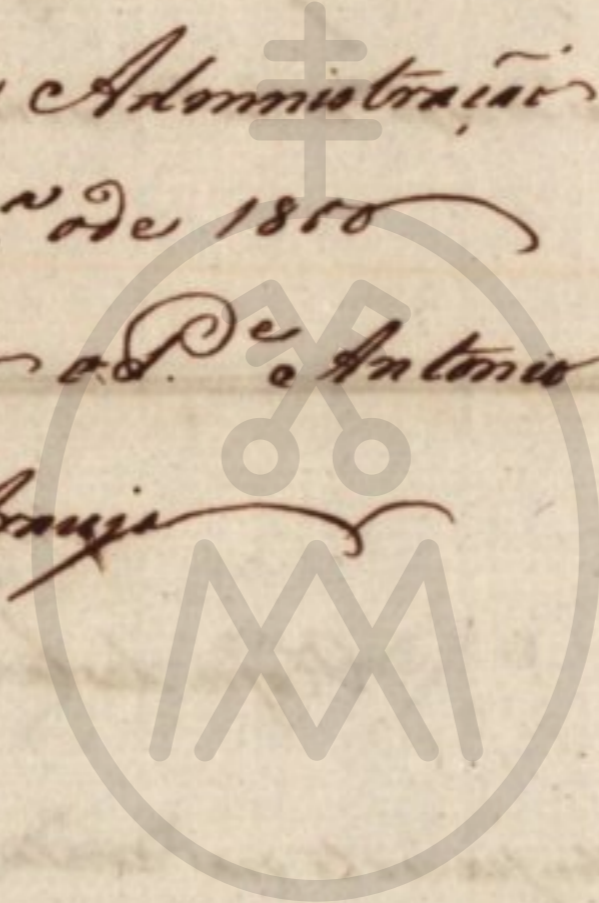 Administração
o de 1850
o P.e Antonio
Araujo